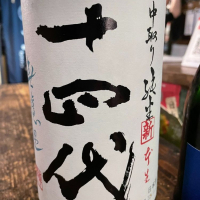 中取り純米
新
本生
十四代